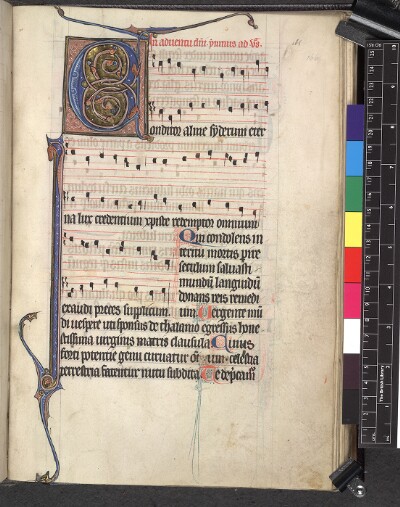 In adventu dni ymnus ad vs.
Conditor alme syderum eter
na lux credentium xpiste redemptor omnium
Qui condolens in
teritu mortis pire
seculum saluasti
mundū languidū
donans reis remedi
exaudi preces supplicum. um Uergente mū
di uespere uti sponsus de thalamo egressus hone
stissima uirginis matris clausula Cuius
forti potentie genu curuantur oīa celestia
terrestria fatentur nutu subdita Te deprecamur
The British Library